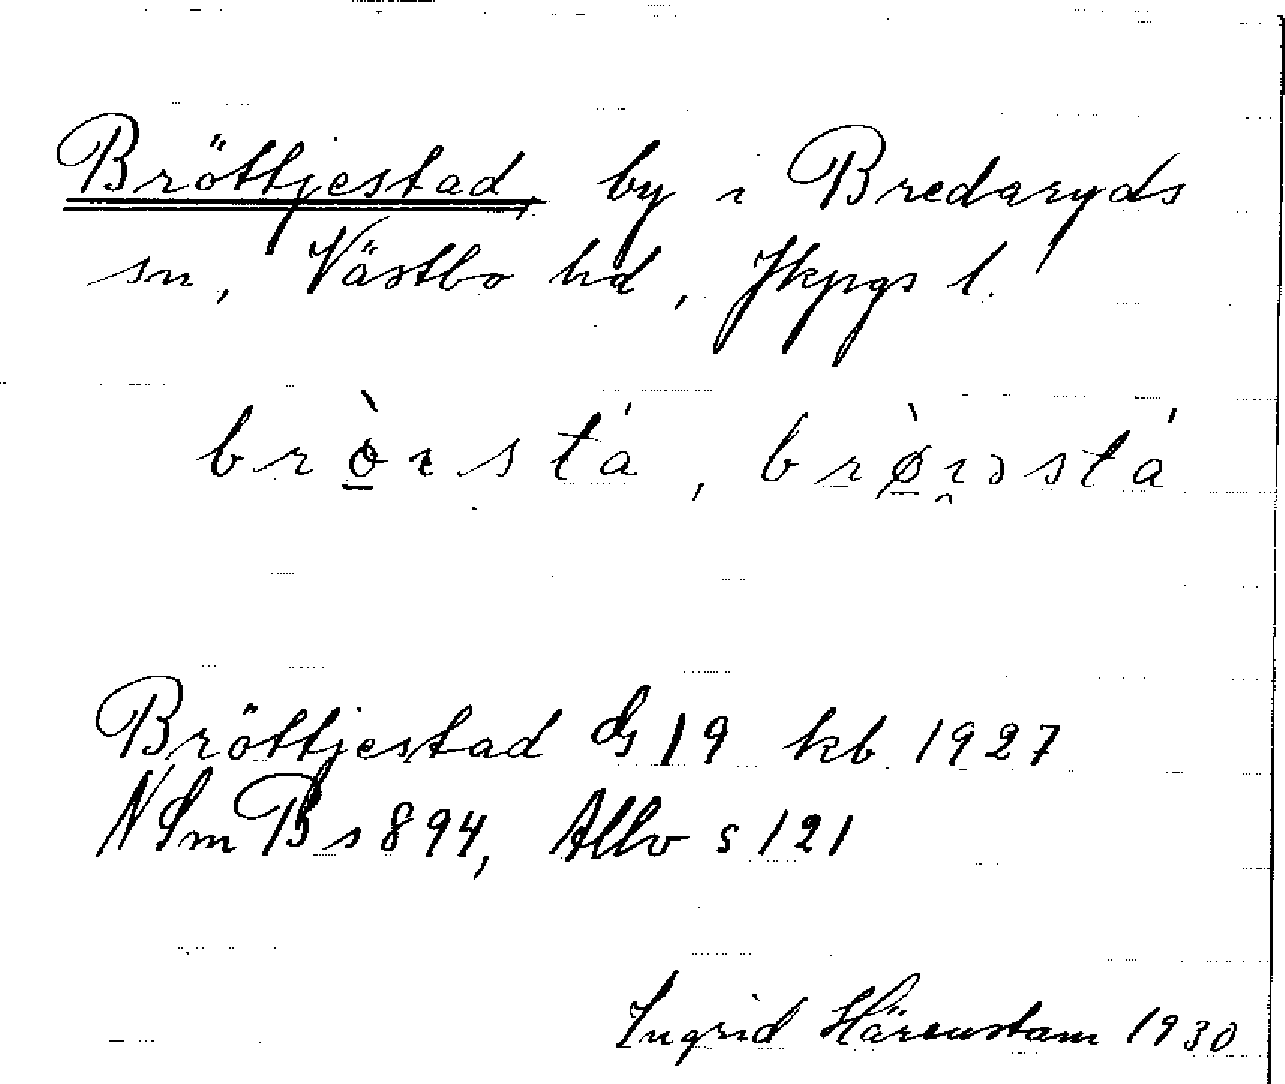 Bröttjestad, by i Bredaryds
sn, Västbo hd, Jkpgs l.
brò̱ɩstá, brø̱̀ɩ̯əstá
Bröttjestad dG 19 kb 1927
NSmB s 894, Allvo s 121
Ingrid Härenstam 1930